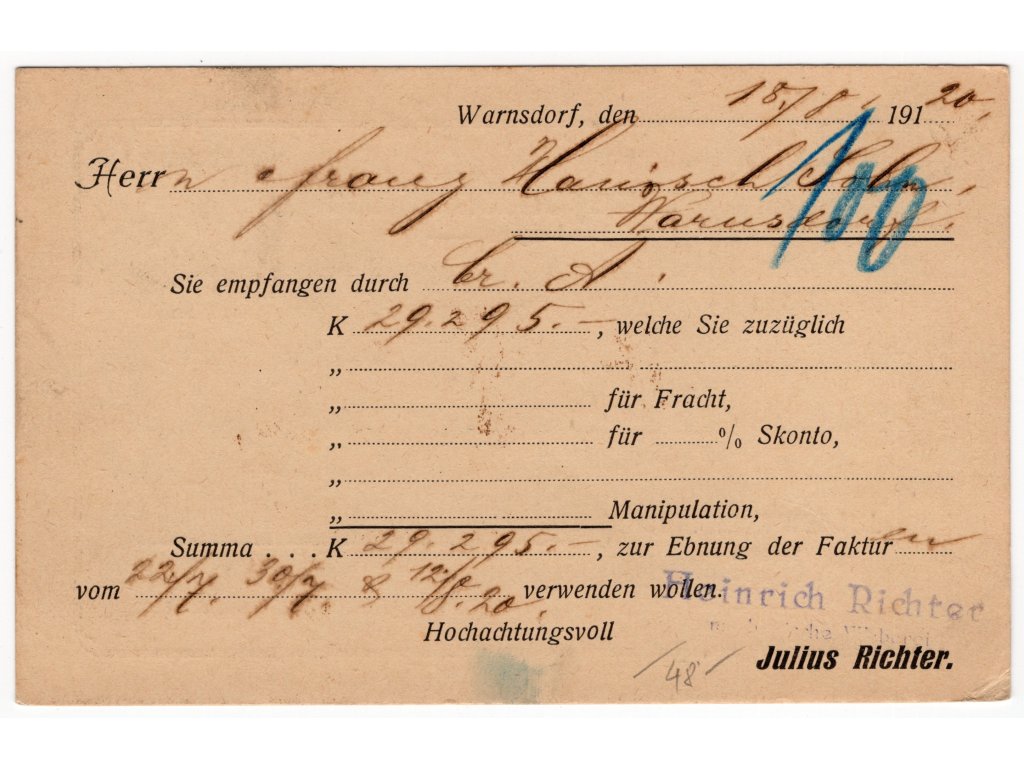 Warnsdorf, den 18/8. 191 20.
Herrn Franz Hanisch Sohn,
Warnsdorf.
100
Sie empfangen durch Cr. A.
K 29.295.–, welche Sie zuzüglich
„
„ für Fracht,
„ für % Skonto,
„
„ Manipulation,
Summa . . . K 29.295.–, zur Ebnung der Fakturen
vom 22/7. 30/7 & 12/8. 20. verwenden wollen.
Heinrich Richter
Hochachtungsvoll
mechanische Weberei
Julius Richter.
/48/